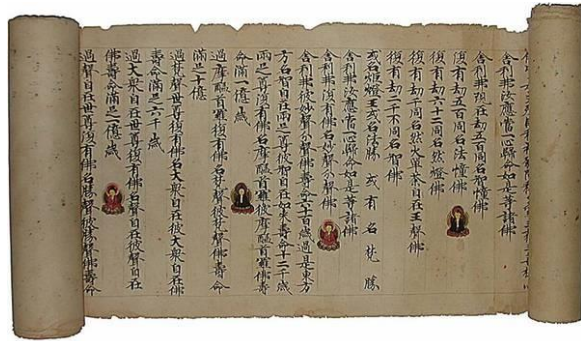 舍利弗汝應當一心歸命如是等諸佛
舍利弗現在劫五百同名智幢佛
復有劫五百同名法幢佛
復有劫六十二同名然燈佛
復有劫千同名然自在王聲佛
復有劫二千不同名智佛
或名燈王或名法勝 或有名梵勝
舍利弗汝應當一心歸命如是等諸佛
舍利弗復有佛名妙聲分聲佛
舍利弗彼妙聲分聲佛壽命六十百歲過是東方
方名智自在兩足尊彼智自在如來壽命十二千歲
兩足尊復有佛名摩醯首羅彼摩醯首羅佛壽
命滿一億歲
過摩醯首羅復有佛名梵聲彼梵聲佛壽命
滿足十億
過梵聲世尊復有佛名大衆自在彼大衆自在佛
壽命滿足六千歲
過大衆自在世尊復有佛名聲自在彼聲自在
佛壽命滿足一億歲
過聲自在世尊復有佛名勝聲彼勝聲佛壽命